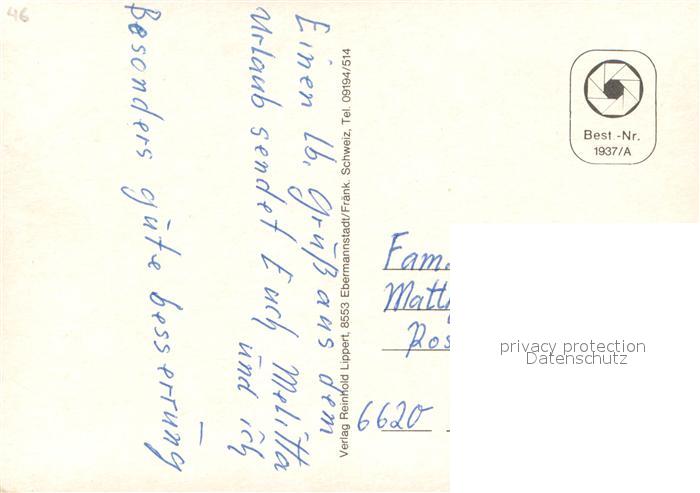 46
Einen lb. Grüß aus dem
Urlaub sendet Euch Melitta
und ich
Besonders güte besserüng
Verlag Reinhold Lippert, 8553 Ebermannstadt/Fränk. Schweiz, Tel. 09194/514
Best.-Nr.
1937/A
Fam.
Matt
Ros
6620
privacy protection
Datenschutz